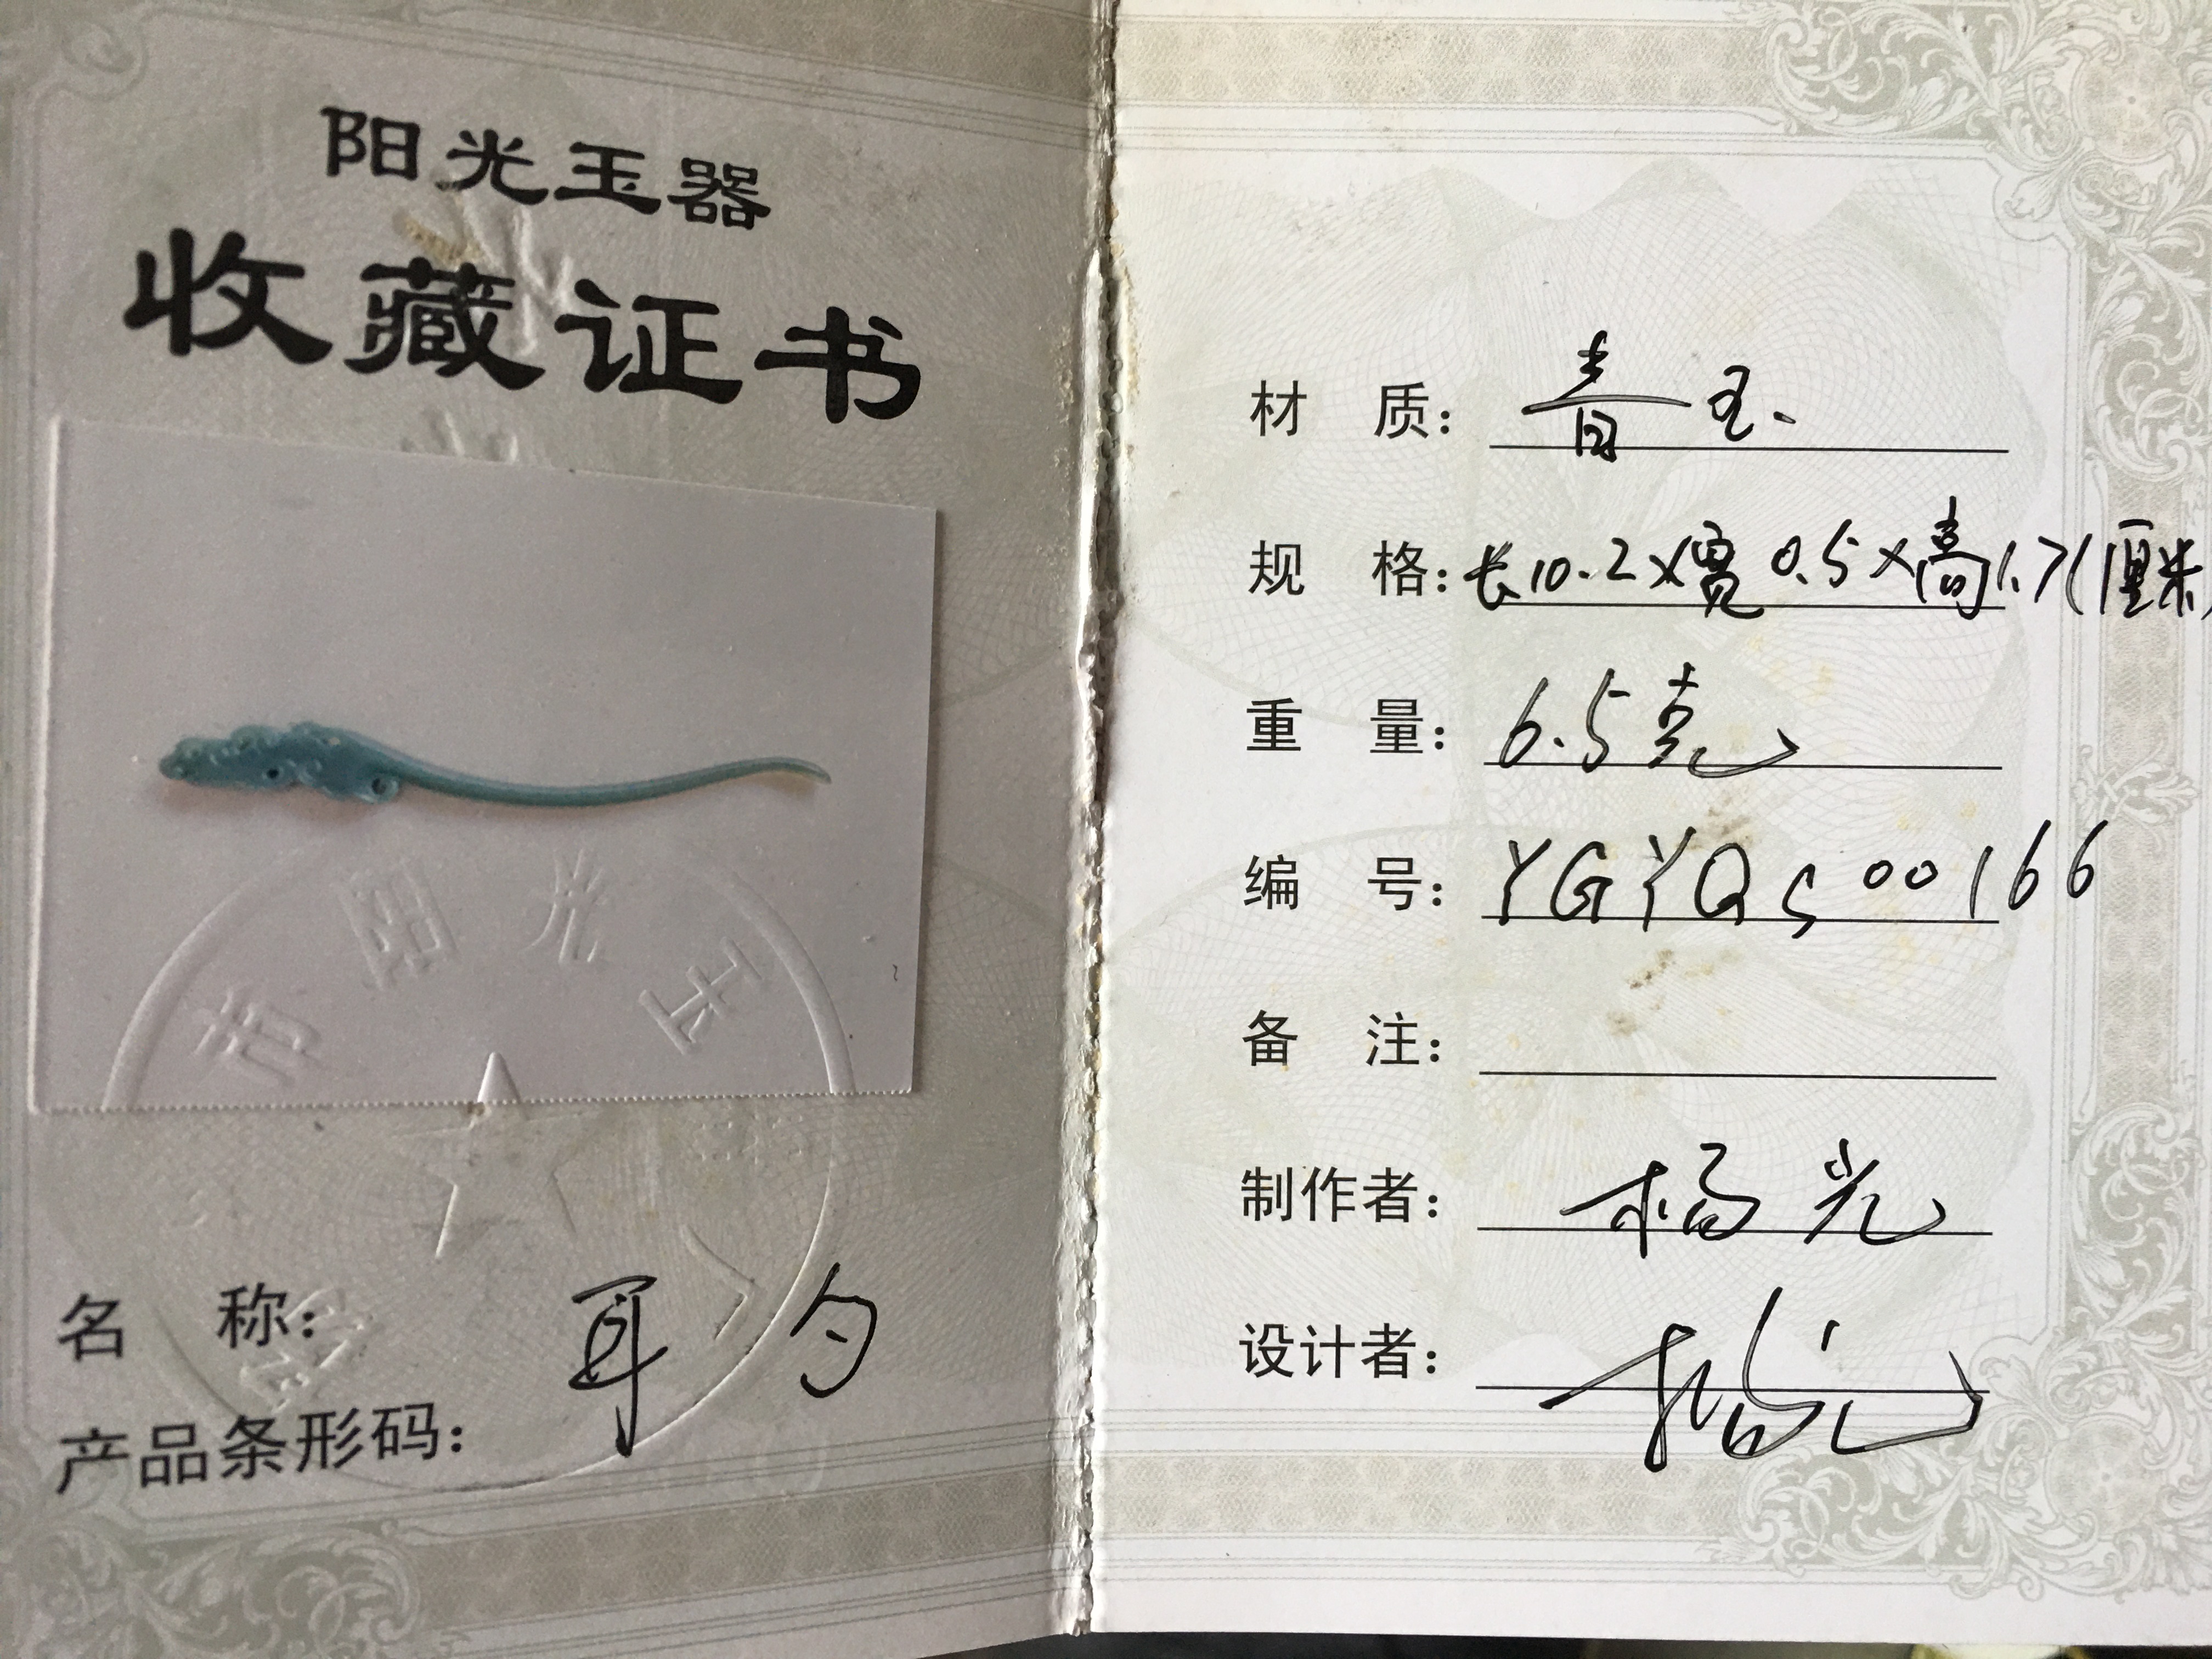 阳光玉器
收藏证书
市阳光玉
名 称：耳勺
产品条形码：
材 质：青玉
规 格：长10.2×宽0.5×高1.7(厘米)
重 量：6.5克
编 号：YGYQS00166
备 注：
制作者：杨光
设计者：杨光